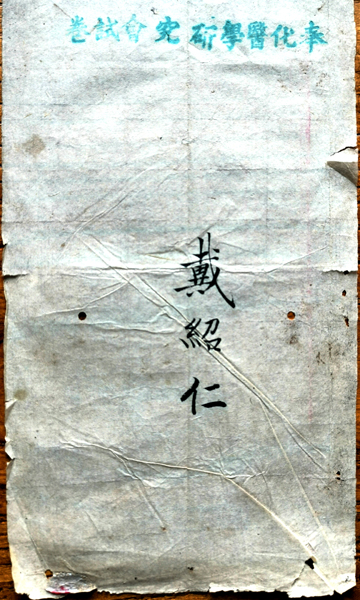 奉化醫學研究會試卷
戴紹仁